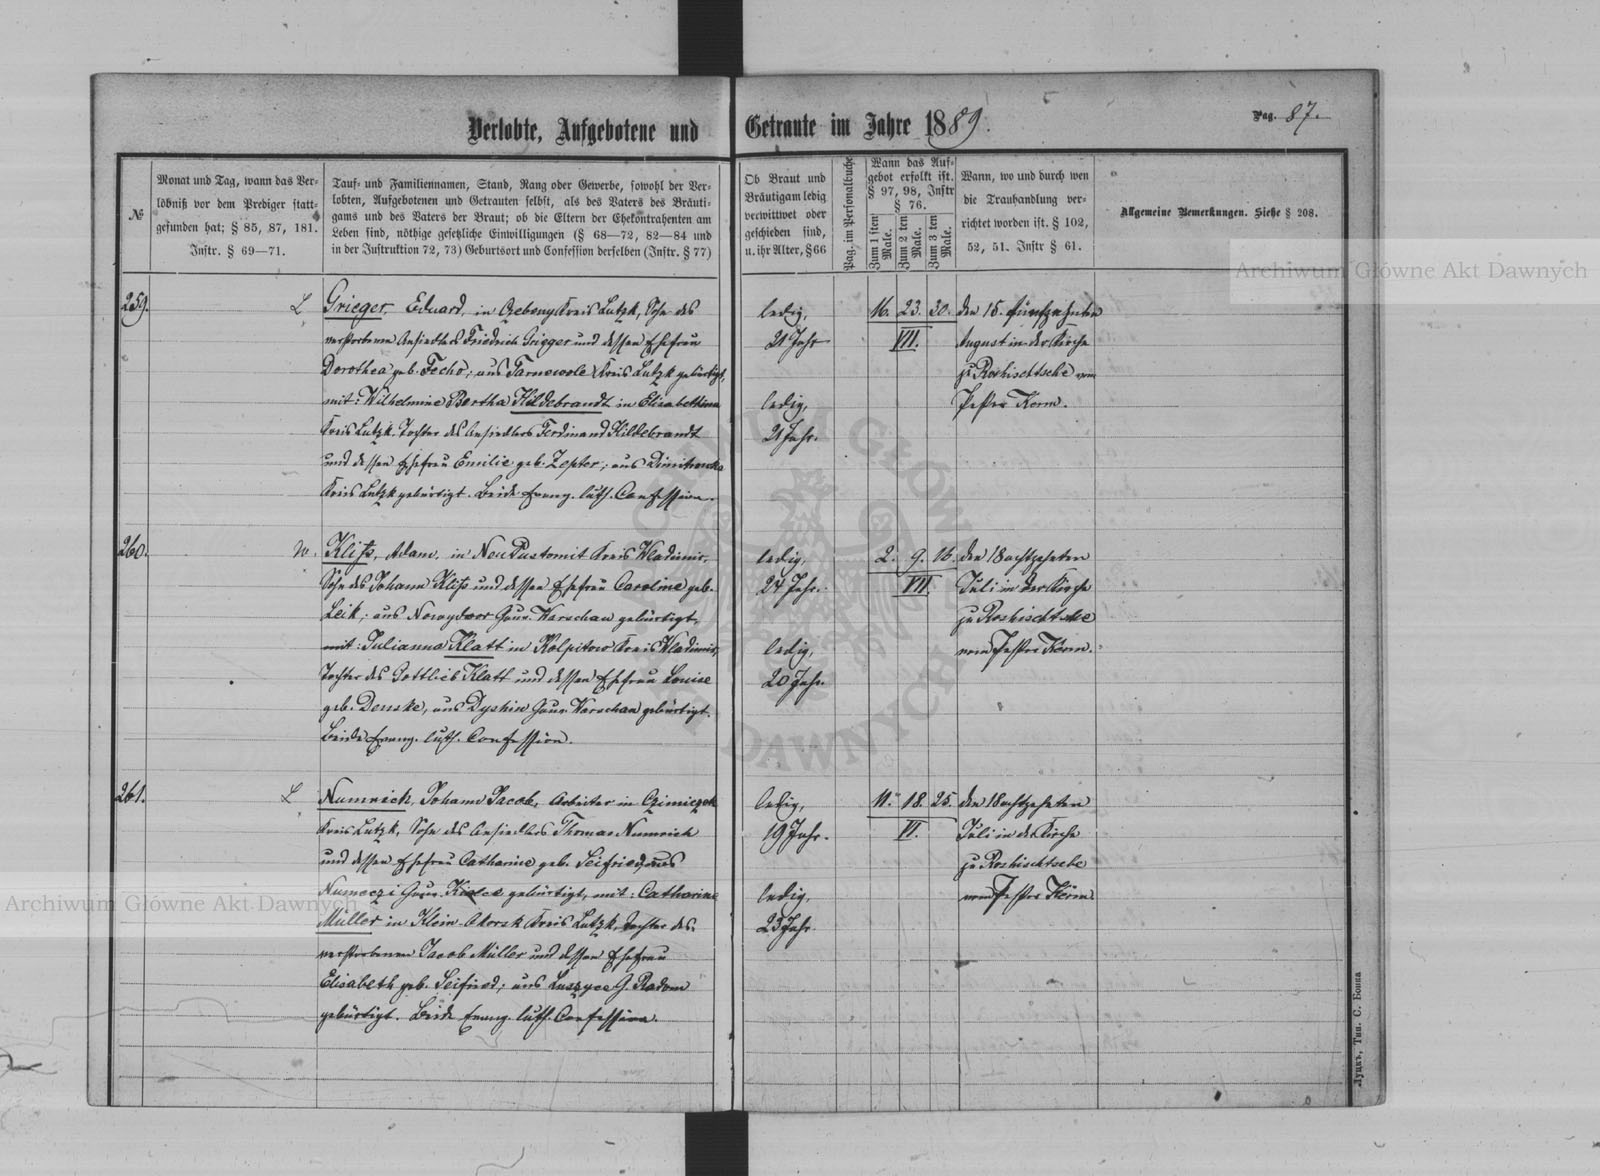 Verlobte, Aufgebotene und Getraute im Jahre 1889.
Pag. 87.
№
Monat und Tag, wann das Ver-
löbniß vor dem Prediger statt-
gefunden hat; § 85, 87, 181.
Instr. § 69—71.
Tauf- und Familiennamen, Stand, Rang oder Gewerbe, sowohl der Ver-
lobten, Aufgebotenen und Getrauten selbst, als des Vaters des Bräuti-
gams und des Vaters der Braut; ob die Eltern der Ehekontrahenten am
Leben sind, nöthige gesetzliche Einwilligungen (§ 68—72, 82—84 und
in der Instruktion 72, 73) Geburtsort und Confession derselben (Instr. § 77)
Ob Braut und
Bräutigam ledig
verwittwet oder
geschieden sind,
u. ihr Alter, § 66
Pag. im Personalbuche
Wann das Auf-
gebot erfolkt ist.
§ 97, 98, Instr
§ 76.
Zum 1 sten Male.
Zum 2 ten Male.
Zum 3 ten Male.
Wann, wo und durch wen
die Trauhandlung ver-
richtet worden ist. § 102,
52, 51. Instr § 61.
Allgemeine Bemerkungen. Siehe § 208.
259.
L
Grieger, Eduard, in Kreis Lutzk, Sohn des
verstorbenen Ansiedlers Friedrich Grigger und dessen Ehefrau
Dorothea geb. Fecho; aus Tarnowole Kreis Lutzk gebürtigt,
mit: Wilhelmine Bertha Hildebrandt in Elisabethina
Kreis Lutzk, Tochter des Ansiedlers Ferdinand Hildebrandt
und dessen Ehefrau Emilie geb. Zepter; aus
Kreis Lutzk gebürtigt. Beide Evang. luth. Confession.
ledig,
21 Jahr
ledig,
21 Jahr.
16. 23. 30.
VII.
den 15. fünfzehnten
August in der Kirche
zu Roshischtsche vom
Pastor Kerm.
260.
W.
Klitz, Adam, in Neu Pustomit Kreis Wladimir,
Sohn des Johann Klitz und dessen Ehefrau Caroline geb.
Leik; aus Nowydwor Gouv. Warschau gebürtigt,
mit: Julianna Klatt in Kolpitow Kreis Wladimir,
Tochter des Gottlieb Klatt und dessen Ehefrau Louise
geb. Denske, aus Dyshin Gouv. Warschau gebürtigt.
Beide Evang. luth. Confession.
ledig,
24 Jahr.
ledig,
20 Jahr.
2. 9. 16.
VII.
den 18 achtzehnten
Juli in der Kirche
zu Roshischtsche
vom Pastor Kerm.
261.
L
Numrich, Johann Jacob, Arbeiter in
Kreis Lutzk, Sohn des Ansiedlers Thomas Numrich
und dessen Ehefrau Catharine geb. Seifried, aus
Numeczi Gouv. Kielce gebürtigt, mit: Catharine
Müller in Klein Okorsk Kreis Lutzk, Tochter des
verstorbenen Jacob Müller und dessen Ehefrau
Elisabeth geb. Seifried; aus Luszyce G. Radom
gebürtigt. Beide Evang. luth. Confession.
ledig,
19 Jahr.
ledig,
23 Jahr.
11. 18. 25.
VI.
den 18 achtzehnten
Juli in der Kirche
zu Roshischtsche
vom Pastor Kerm.
Луцкъ, Тип. С. Бонка
Archiwum Główne Akt Dawnych
Archiwum Główne Akt Dawnych